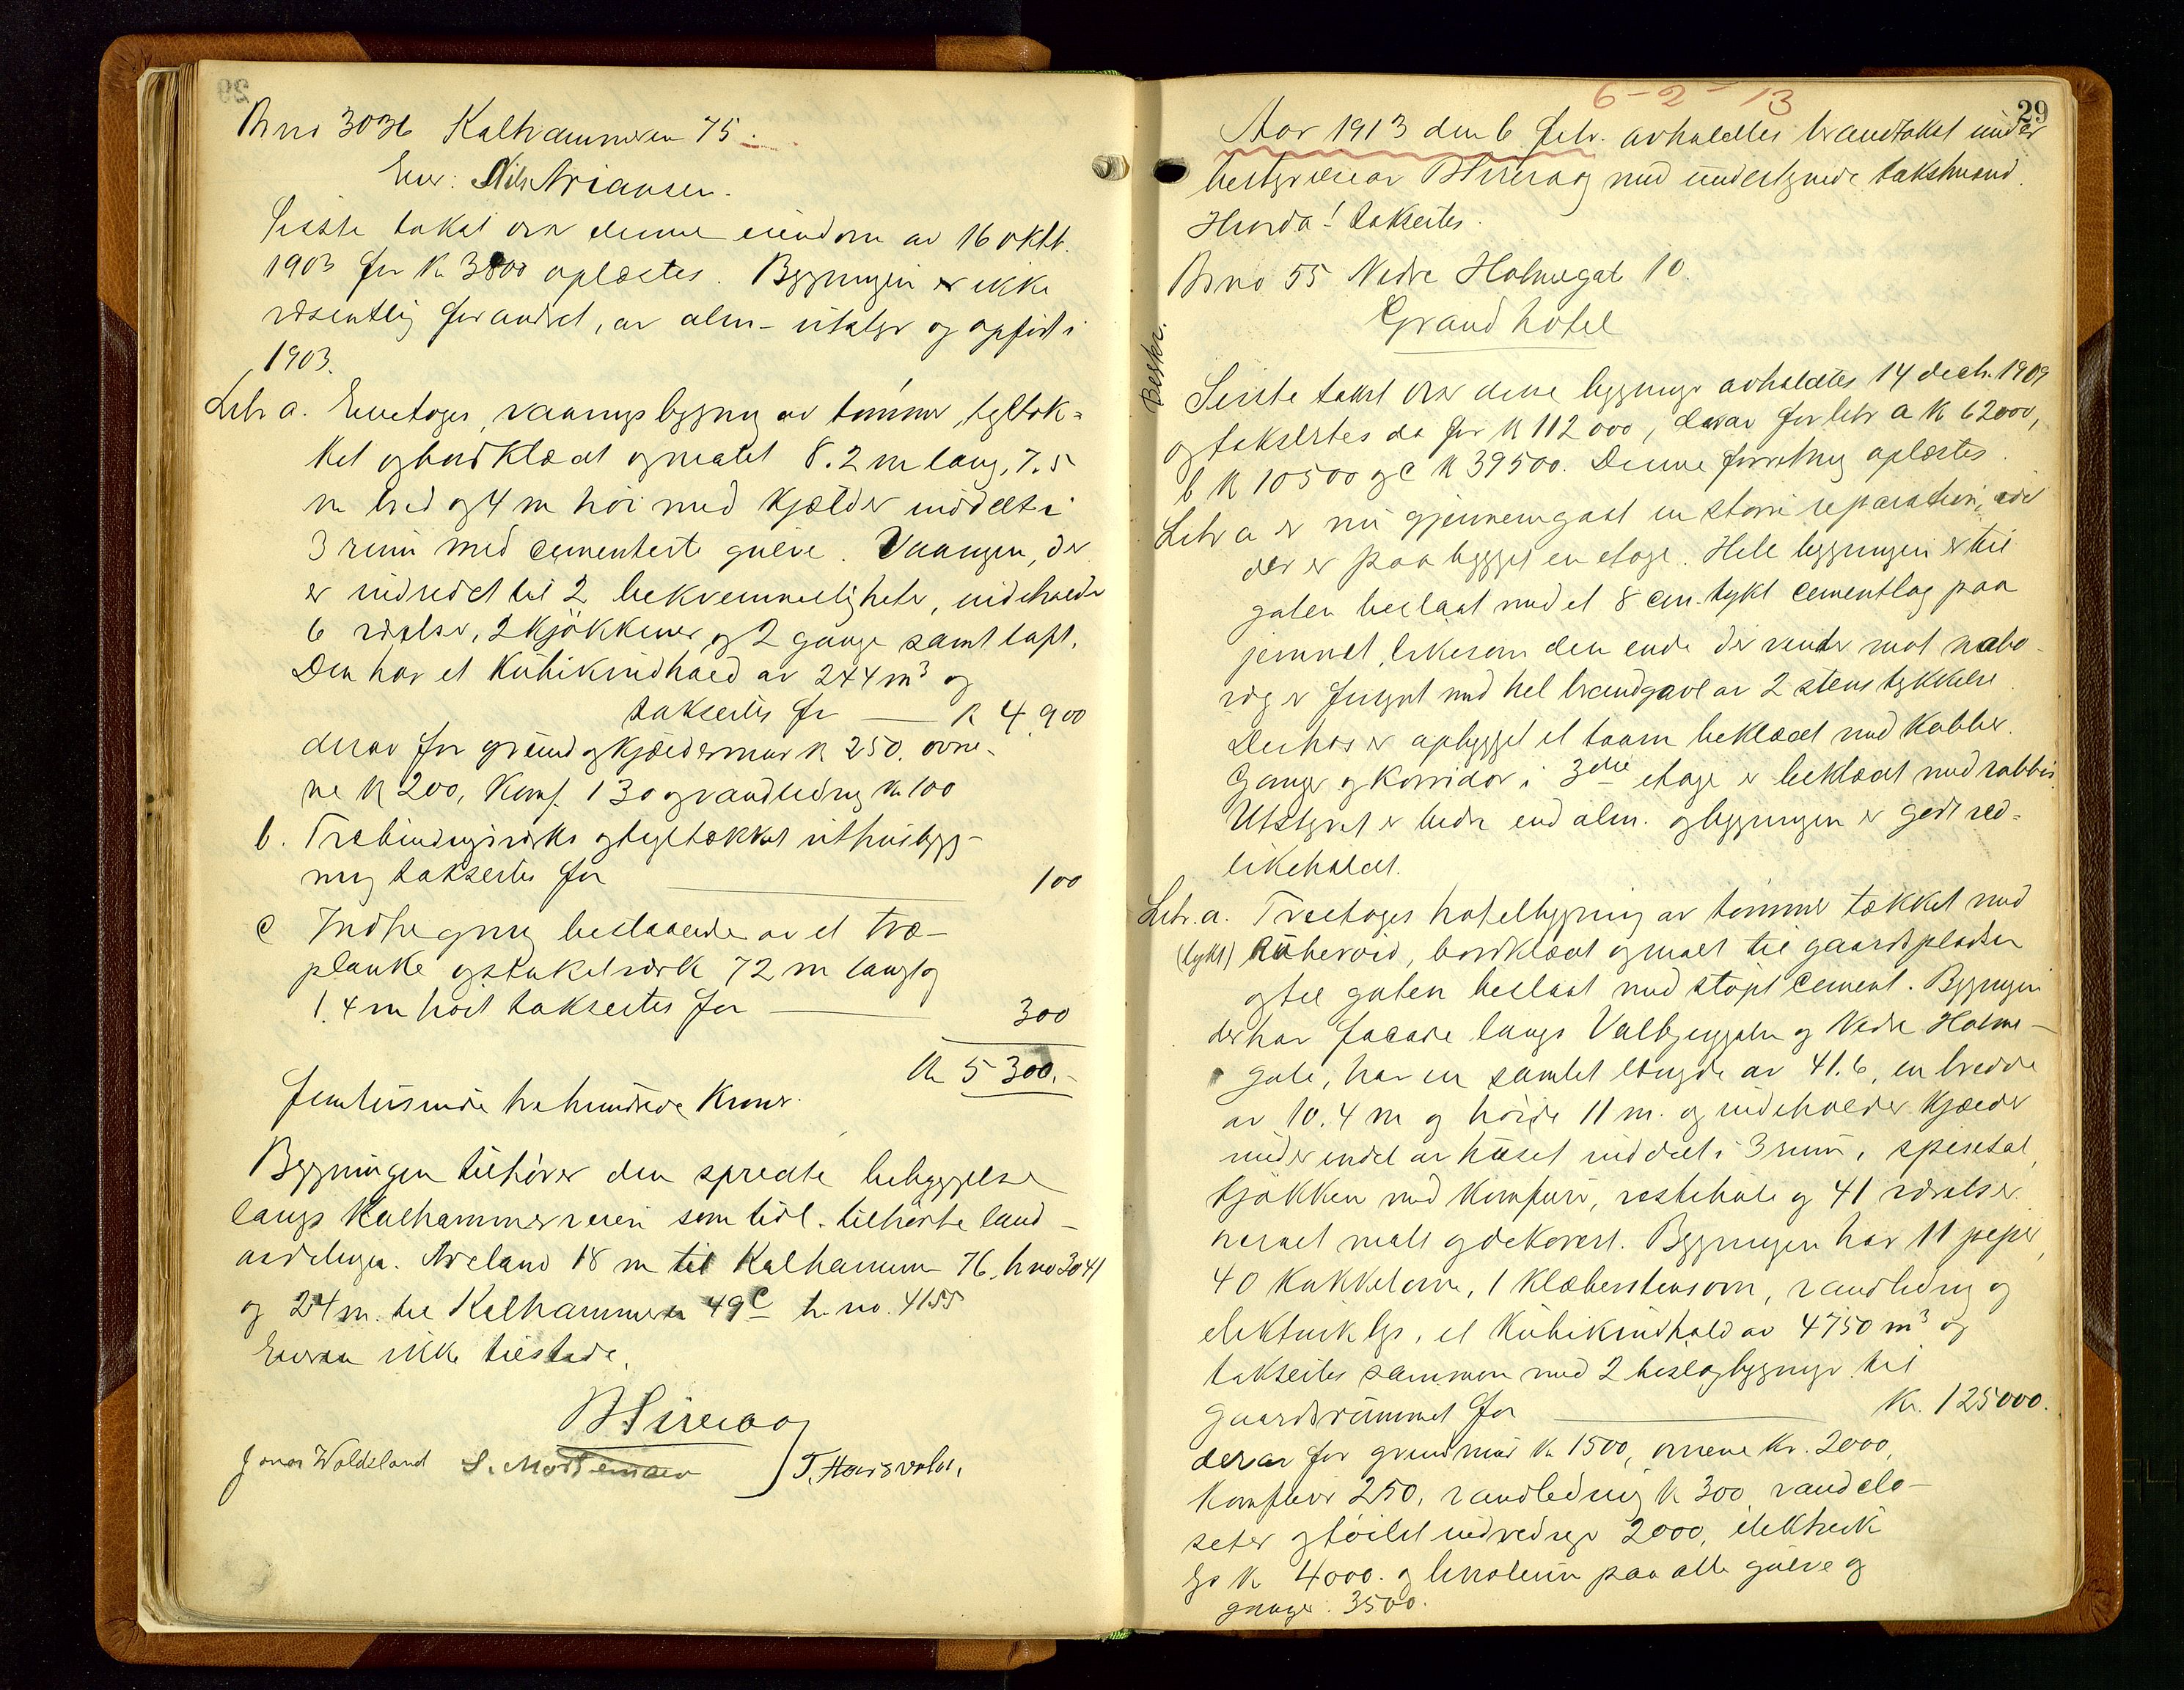 Brno 3036 Kalhammeren 75.
Eier: Nils Ariansen.
Siste takst over denne eiendom av 16 oktb.
1903 for kr 3800 oplæstes. Bygningen er ikke
væsentlig forandret, av alm. utstyr og opført i
1903.
Litr a. Enetages, vaaningsbygning av tømmer, tegltæk-
ket og bordklædt og malet 8.2 m lang, 7.5
m bred og 4 m høi med kjælder inddelt i
3 rum med cementerte gulve. Vaaningen, der
er indredet til 2 bekvemmeligheter, indeholder
6 værelser, 2 kjøkkener og 2 gange samt loft.
Den har et kubikindhold av 244 m³ og
takseres for — K 4,900
derav for grund og kjældermur k 250. ovne-
ne k 200, Komf. 130 og vandledning kr 100
b. Træbindingsverks og tegltækket uthusbygg-
ning takseres for 100
c Indhegning bestaaende av et træ-
planke og stakitverk 72 m langt og
1.4 m høit takseres for — 300
Kr 5300.-
femtusinde trehundrede Kroner.
Bygningen tilhører den spredte bebyggelse
langs Kalhammerveien som tidl. tilhørte land-
avdelingen. Avstand 18 m til Kalhammer 76, br no 3041
og 24 m. til Kalhammeren 49c br. no. 4155
Eieren ikke tilstede.
Jonas Waldeland S. Mortensen } T. Hausvold.
6-2-13
29
Aar 1913 den 6 febr. avholdtes brandtakst under
bestyrelse av med undertegnede takstmænd.
Hvorda! takseres.
Brno 55 Nedre Holmegate 10.
Grand hotel
Beskr.
Siste takst over denne bygninge avholdtes 14 decbr. 1909
og takseretes da for K 112 000, derav for litr a K 62000,
b K 10500 og c K 39500. Denne forretning oplæstes.
Litr a er nu gjennemgaat en større reparation, idet
der er paabygget en etage. Hele bygningen er til
gaten beslaat med et 8 cm. tykt cementlag paa
jernnet, likesom den ende der vender mot nabo-
væg er forsynt med hel brandgavl av 2 stens tykkelse.
Derhos er opbygget et taarn beklædt med kobber.
Ganger og korridor i 3die etage er beklædt med rabbis
Utstyret er bedre end alm. og bygningen er godt ved-
likeholdt.
Litr. a. Treetages hotelbygning av tømmer tækket med
(lykt) Ruberoid, bordklædt og malt til gaardspladsen
og til gaten beslaat med støpt cement. Bygningen
der har facade langs Valbjerggaten og Nedre Holme-
gate, har en samlet længde av 41.6, en bredde
av 10.4 m og høide 11 m. og indeholder kjælder
under endel av huset inddelt i 3 rum, spisesal,
kjøkken med komfur, vestibule og 41 værelser
hvorav malt og dekorert. Bygningen har 11 piper,
40 kakkelovne, 1 klæberstensovn, vandledning og
elektrisk lys, et kubikindhold av 4750 m³ og
takseres sammen med 2 beslagbygninger til
gaardsrummet for — Kr. 125000.
derav for grundmur kr 1500, ovnene Kr. 2000,
Komfurer 250, vandledning k 300 vandclo-
seter og toilet indredninger 2000, elektrisk
lys kr 4000. og linoleum paa alle gulve og
ganger. 3500.